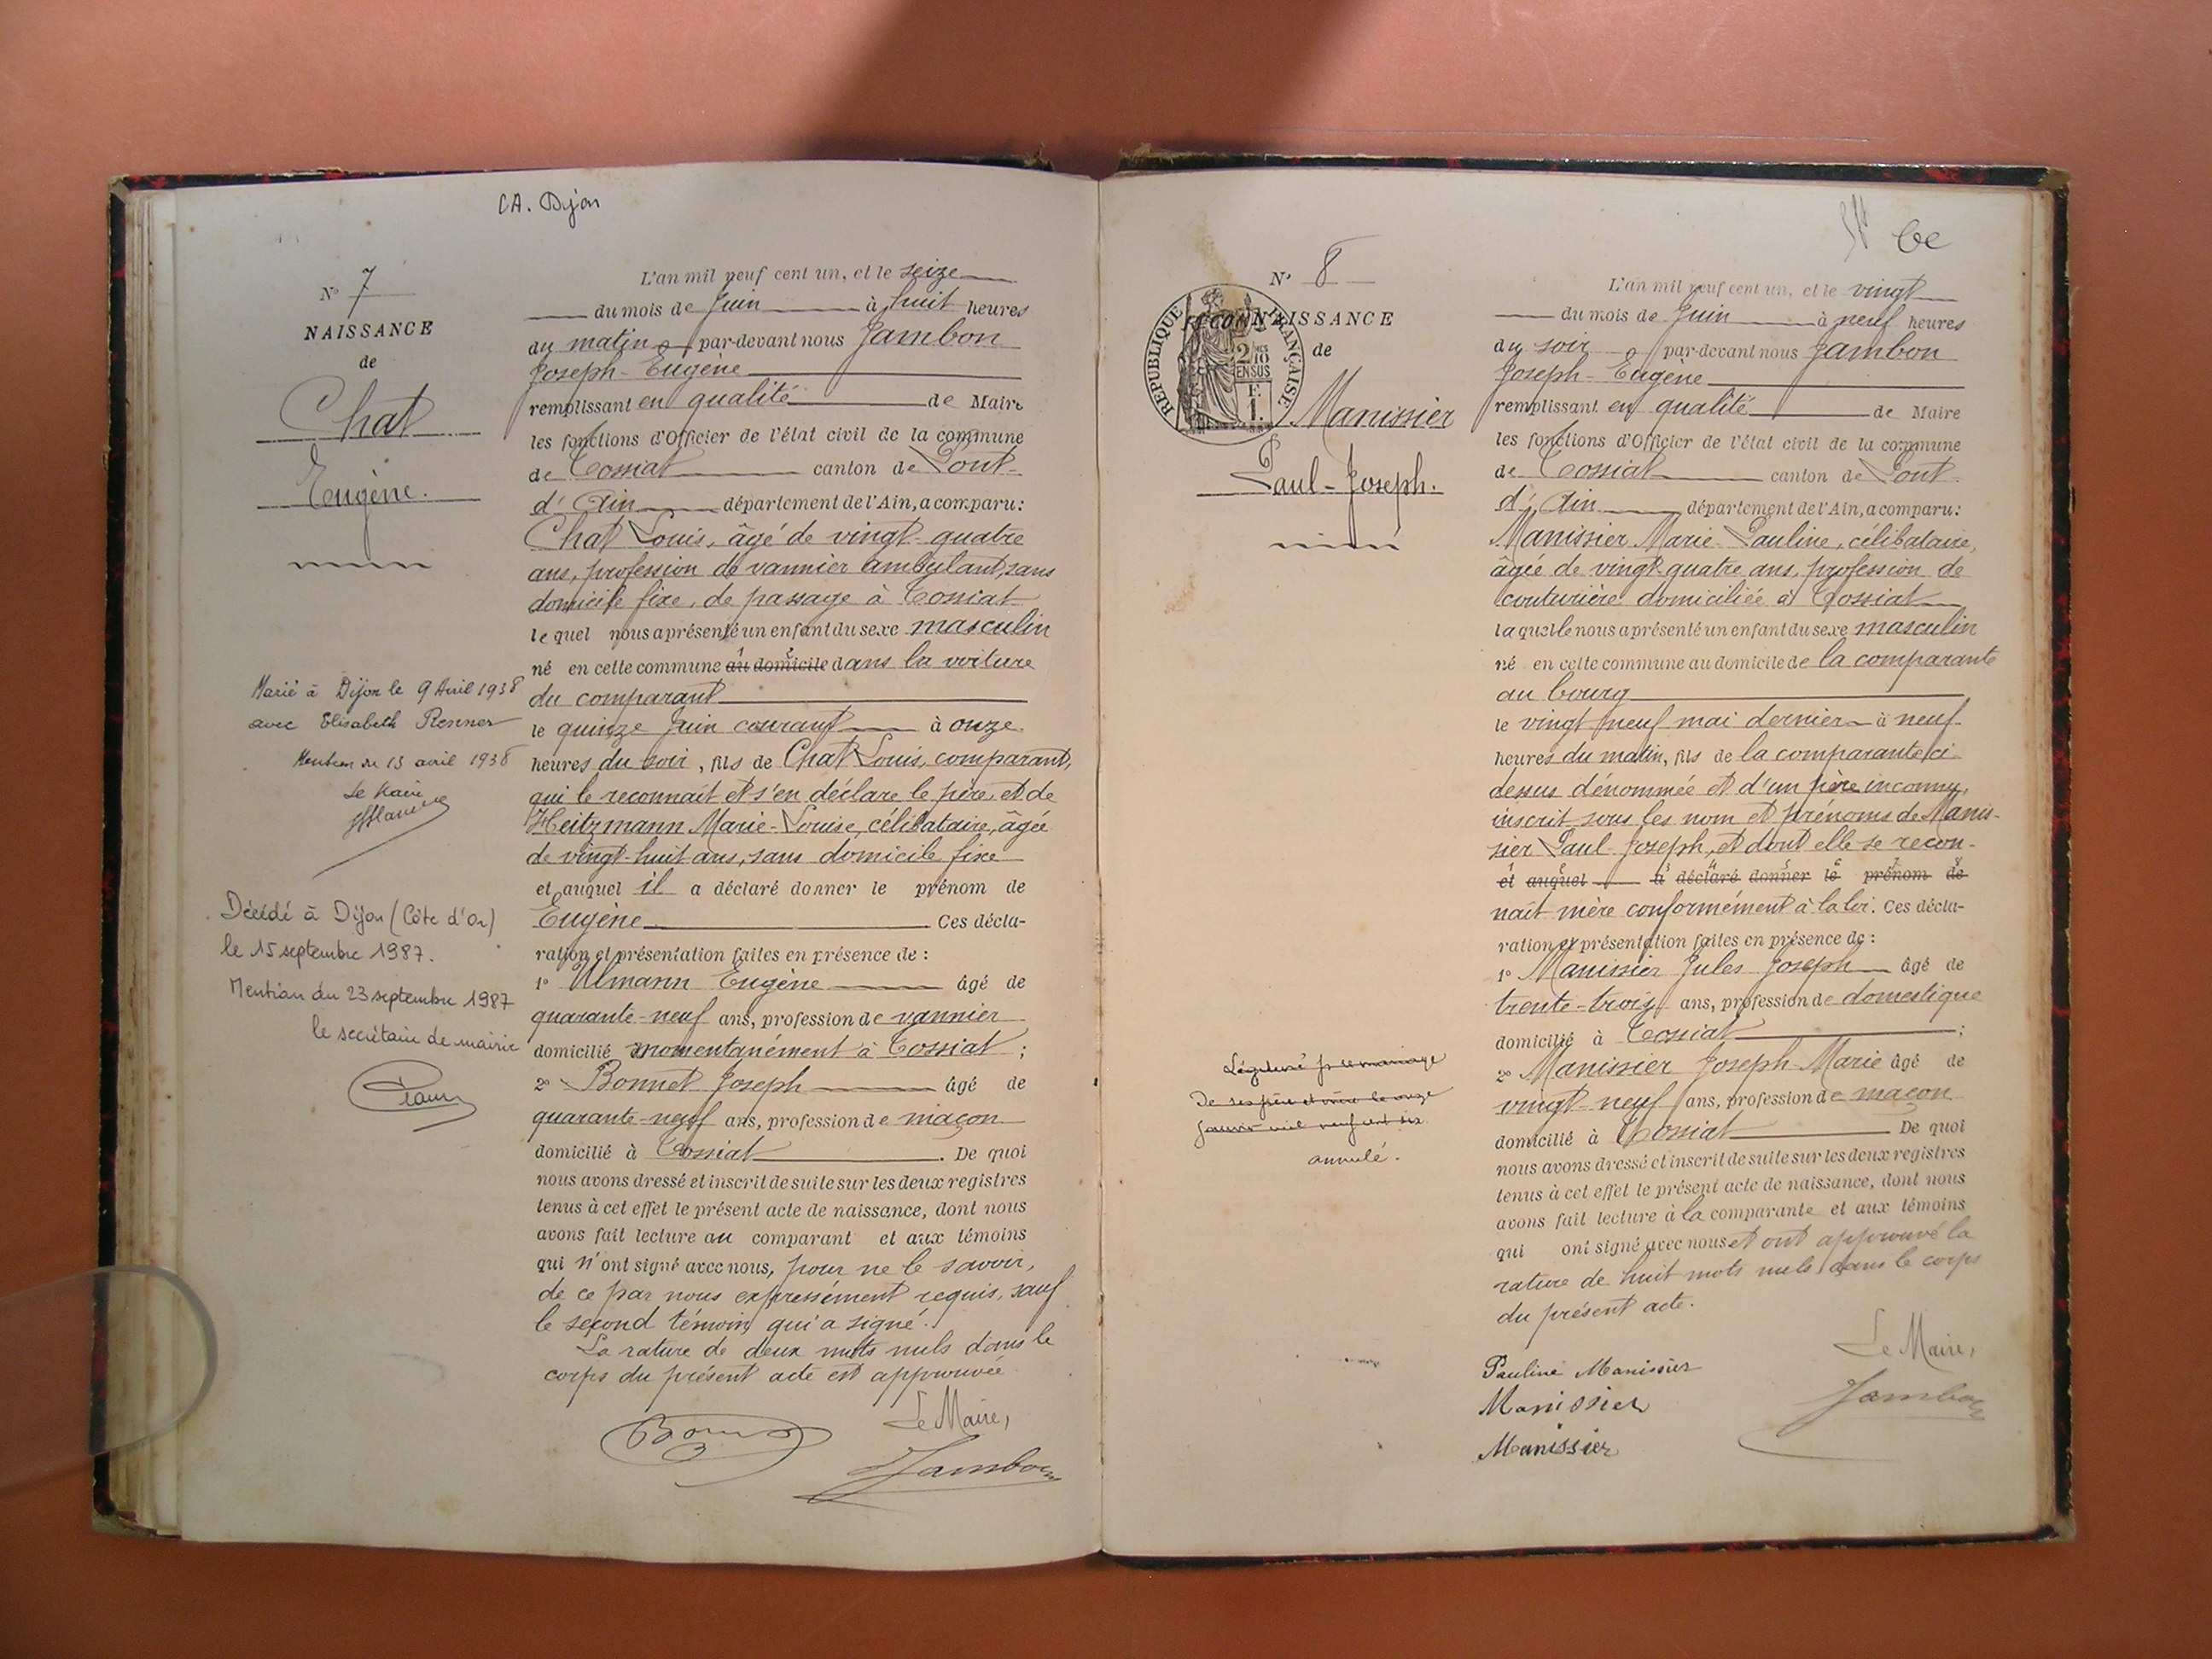 CA. Dijon
N° 7
NAISSANCE
de
Chat
Eugène.
Marié à Dijon le 9 Avril 1938
avec Elisabeth Renner
Mention du 13 avril 1938
Le Maire
Décédé à Dijon (Côte d'Or)
le 15 septembre 1987.
Mention du 23 septembre 1987
le secrétaire de mairie
L'an mil neuf cent un, et le seize
du mois de Juin à huit heures
du matin par-devant nous Jambon
Joseph-Eugène
remplissant en qualité de Maire
les fonctions d'Officier de l'état civil de la commune
de Tossiat canton de Pont-
d'Ain département de l'Ain, a comparu:
Chat Louis, âgé de vingt-quatre
ans, profession de vannier ambulant, sans
domicile fixe, de passage à Tossiat
lequel nous a présenté un enfant du sexe masculin
né en cette commune au domicile dans la voiture
du comparant
le quinze Juin courant à onze
heures du soir, fils de Chat Louis, comparant,
qui le reconnaît et s'en déclare le père, et de
Heitzmann Marie-Louise, célibataire, âgée
de vingt-huit ans, sans domicile fixe
et auquel il a déclaré donner le prénom de
Eugène Ces décla-
ration et présentation faites en présence de :
1° Ulmann Eugène âgé de
quarante-neuf ans, profession de vannier
domicilié momentanément à Tossiat ;
2° Bonnet Joseph âgé de
quarante-neuf ans, profession de maçon
domicilié à Tossiat. De quoi
nous avons dressé et inscrit de suite sur les deux registres
tenus à cet effet le présent acte de naissance, dont nous
avons fait lecture au comparant et aux témoins
qui n'ont signé avec nous, pour ne le savoir,
de ce par nous expressément requis, sauf
le second témoin qui a signé.
La rature de deux mots nuls dans le
corps du présent acte est approuvée
Le Maire,
Jambon
N° 8
RÉPUBLIQUE FRANÇAISE
2/10 EN SUS
F. 1.
NAISSANCE
de
Manissier
Paul-Joseph.
Légitimé par le mariage
de ses père et mère le onze
janvier mil neuf cent six
annulé.
L'an mil neuf cent un, et le vingt
du mois de Juin à neuf heures
du soir par-devant nous Jambon
Joseph-Eugène
remplissant en qualité de Maire
les fonctions d'Officier de l'état civil de la commune
de Tossiat canton de Pont-
d'Ain département de l'Ain, a comparu:
Manissier Marie-Pauline, célibataire,
âgée de vingt-quatre ans, profession de
couturière domiciliée à Tossiat
laquelle nous a présenté un enfant du sexe masculin
né en cette commune au domicile de la comparante
au bourg
le vingt neuf mai dernier à neuf
heures du matin, fils de la comparante ci-
dessus dénommée et d'un père inconnu,
inscrit sous les nom et prénoms de Manis-
sier Paul-Joseph, et dont elle se recon-
et auquel a déclaré donner le prénom de
naît mère conformément à la loi. Ces décla-
ration et présentation faites en présence de :
1° Manissier Jules Joseph âgé de
trente-trois ans, profession de domestique
domicilié à Tossiat ;
2° Manissier Joseph-Marie âgé de
vingt-neuf ans, profession de maçon
domicilié à Tossiat De quoi
nous avons dressé et inscrit de suite sur les deux registres
tenus à cet effet le présent acte de naissance, dont nous
avons fait lecture à la comparante et aux témoins
qui ont signé avec nous et ont approuvé la
rature de huit mots nuls dans le corps
du présent acte.
Le Maire,
Pauline Manissier
Manissier
Manissier
Jambon